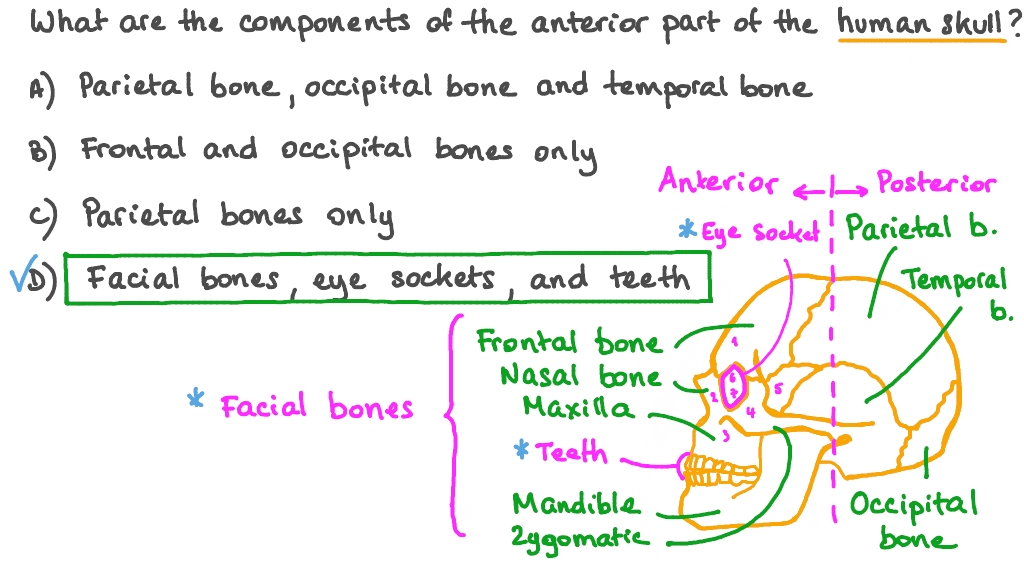 What are the components of the anterior part of the human skull?
A) Parietal bone, occipital bone and temporal bone
B) Frontal and occipital bones only
C) Parietal bones only
✓D) Facial bones, eye sockets, and teeth
Anterior ←|→ Posterior
* Eye socket
Parietal b.
Temporal
b.
Frontal bone
Nasal bone
Maxilla
* Facial bones
* Teeth
Mandible
Zygomatic
Occipital
bone
1
6
7
2
5
4
3